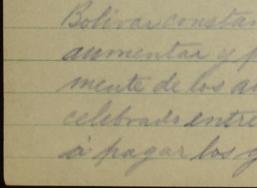 Bolivar constan
aumentar y p
mente de los a
celebrado entre
á pagar los g